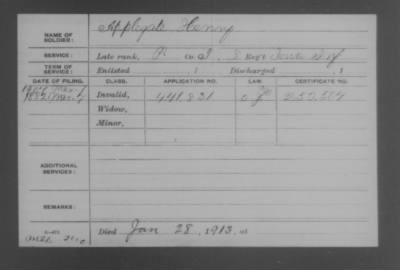 NAME OF SOLDIER: Applegate Henry
SERVICE: Late rank, Co. Reg't Iowa Inf
TERM OF SERVICE: Enlisted , 1 Discharged , 1
DATE OF FILING. CLASS. APPLICATION NO. LAW. CERTIFICATE NO.
1882 Invalid, 441.831
Widow,
Minor,
ADDITIONAL SERVICES:
REMARKS:
Died Jan 28, 1913, at